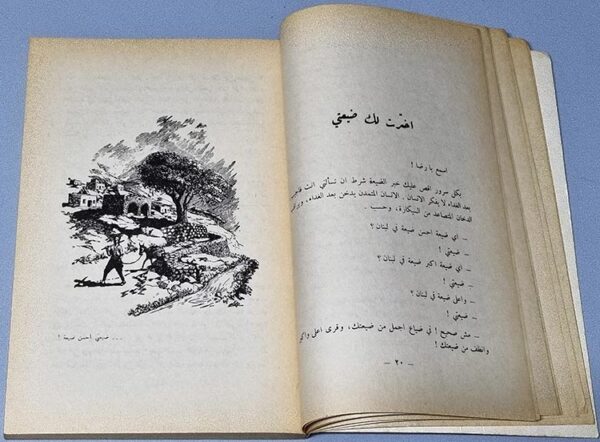 ... ضيعتي أحسن ضيعة !
اخترت لك ضيعتي
اسمع يا رضا !
بكل سرور اقص عليك خبر الضيعة شرط ان تسألني انت
بعد الغداء لا يفكر الانسان . الانسان المتمدن يدخن بعد الغداء،
الدخان المتصاعد من السيكارة ، وحسب .
– اي ضيعة احسن ضيعة في لبنان ؟
– ضيعتي !
– اي ضيعة اكبر ضيعة في لبنان ؟
– ضيعتي !
– واعلى ضيعة في لبنان ؟
– ضيعتي !
– مش صحيح ! في ضياع اجمل من ضيعتك ، وقرى اعلى واكبر
وانظف من ضيعتك !
– ٢٠ –